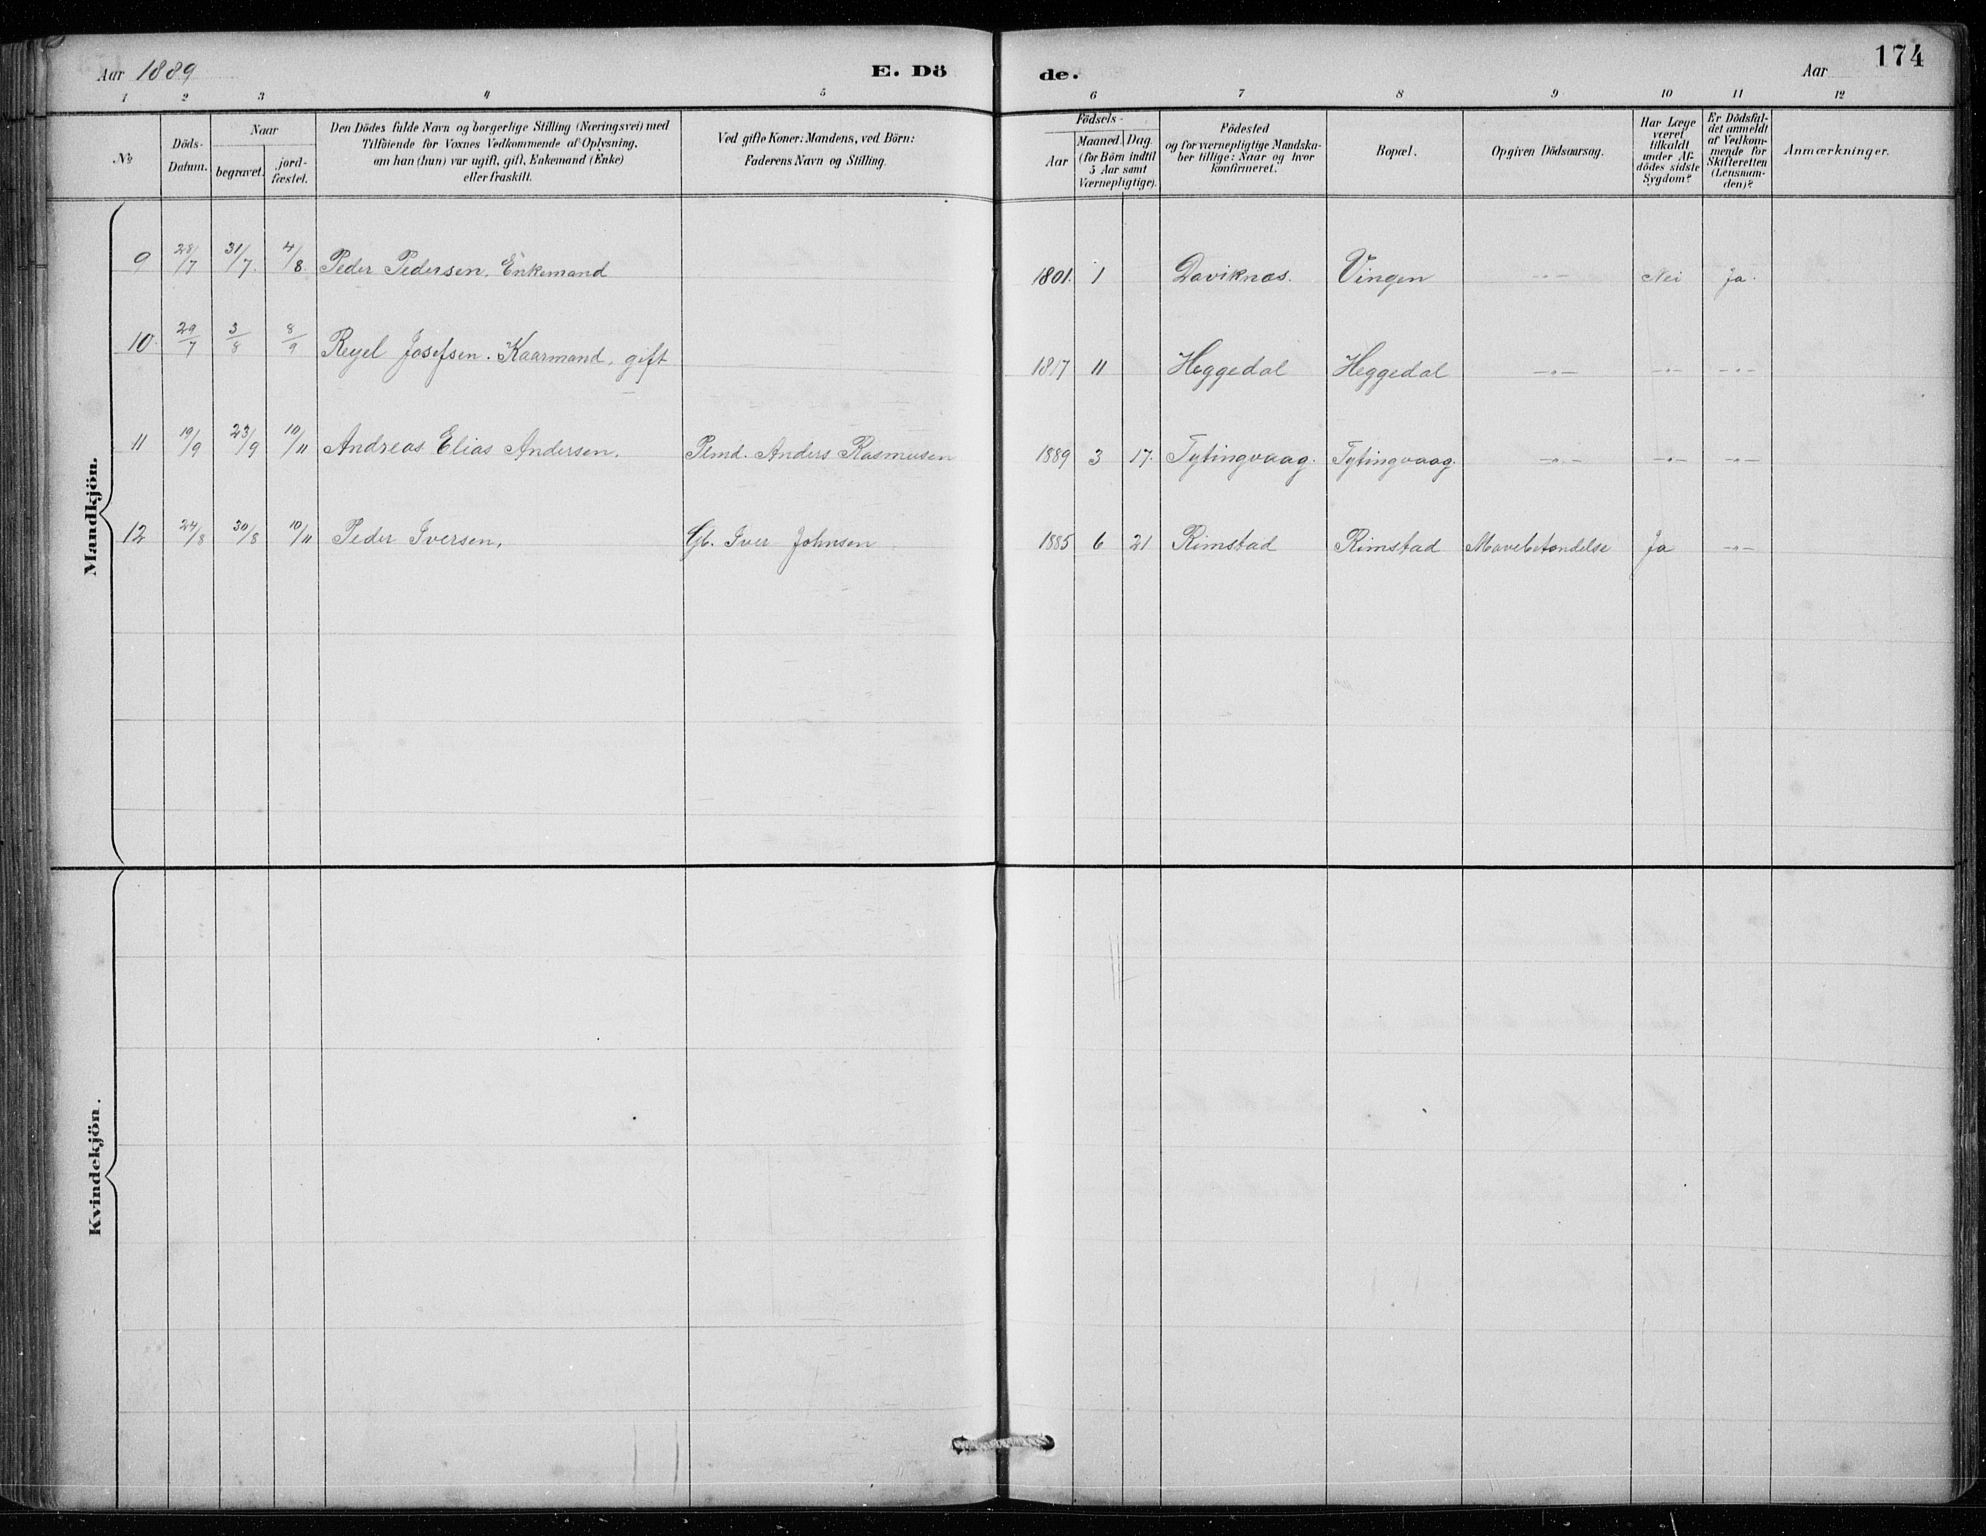 Aar 1889 E. Dö de. Aar 174
1 2 3 4 5 6 7 8 9 10 11 12
No
Döds-Datum.
Naar
begravet.
jord-fæstet.
Den Dödes fulde Navn og borgerlige Stilling (Næringsvei) med
Tilföiende for Voxnes Vedkommende af Oplysning,
om han (hun) var ugift, gift, Enkemand (Enke)
eller fraskilt.
Ved gifte Koner: Mandens, ved Börn:
Faderens Navn og Stilling.
Födsels-
Aar
Maaned. Dag
(for Börn indtil
5 Aar samt
Værnepligtige).
Födested
og for værnepligtige Mandska-
ber tillige: Naar og hvor
konfirmeret.
Bopæl.
Opgiven Dödsaarsag.
Har Læge
været
tilkaldt
under Af-
dödes sidste
Sygdom?
Er Dödsfal-
det anmeldt
af Vedkom-
mende for
Skifteretten
(Lensman-
den)?
Anmærkninger.
Mandkjön.
9 28/7 31/7. 4/8. Peder Pedersen, Enkemand 1801. 1 Daviknæs. Vingen -"- Nei Ja.
10. 29/7 3/8 8/9 Reyel Josefsen. Kaarmand, gift 1817 11 Heggedal Heggedal -"- -"- -"-
11 19/9 23/9 10/11 Andreas Elias Andersen. Plmd. Anders Rasmusen 1889 3 17. Tytingvaag. Tytingvaag. -"- -"- -"-
12 24/8 30/8 10/11 Peder Iversen, Gb. Iver Johnsen 1885 6 21 Rimstad Rimstad Mavebetændelse Ja -"-
Kvindekjön.